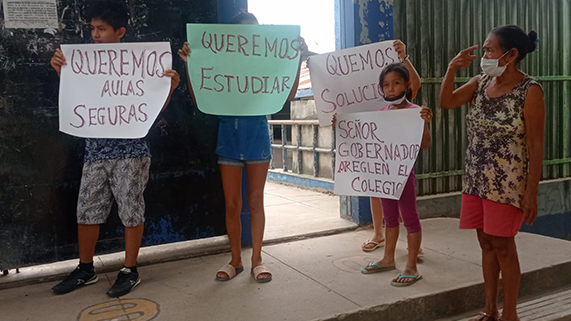 QUEREMOS
AULAS
SEGURAS
QUEREMOS
ESTUDIAR
QUEMOS
SOLUCIO
SEÑOR
GOBERNADOR
AREGLEN EL
COLEGIO